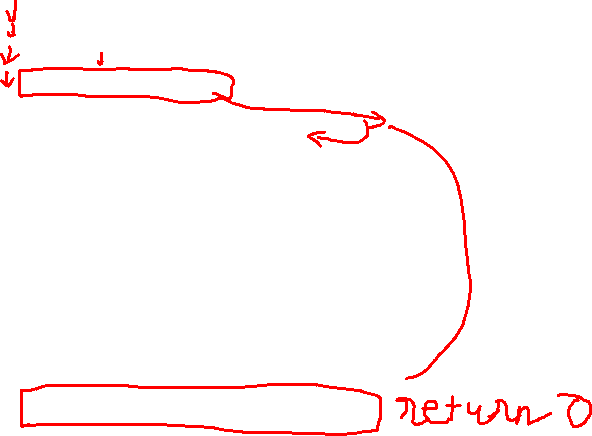 return 0